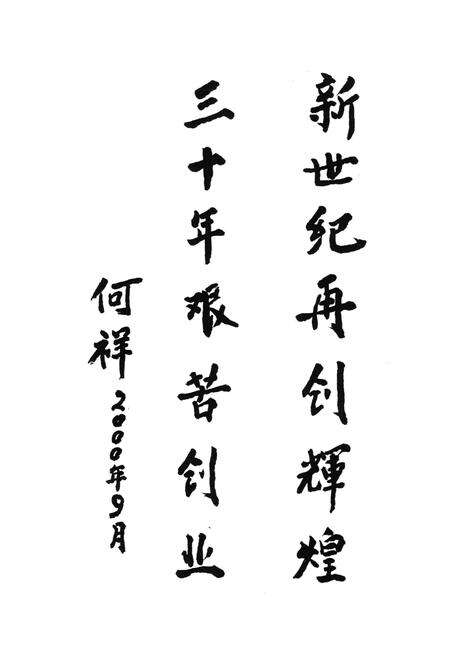 新世纪再创輝煌
三十年艰苦创业
何祥2000年9月